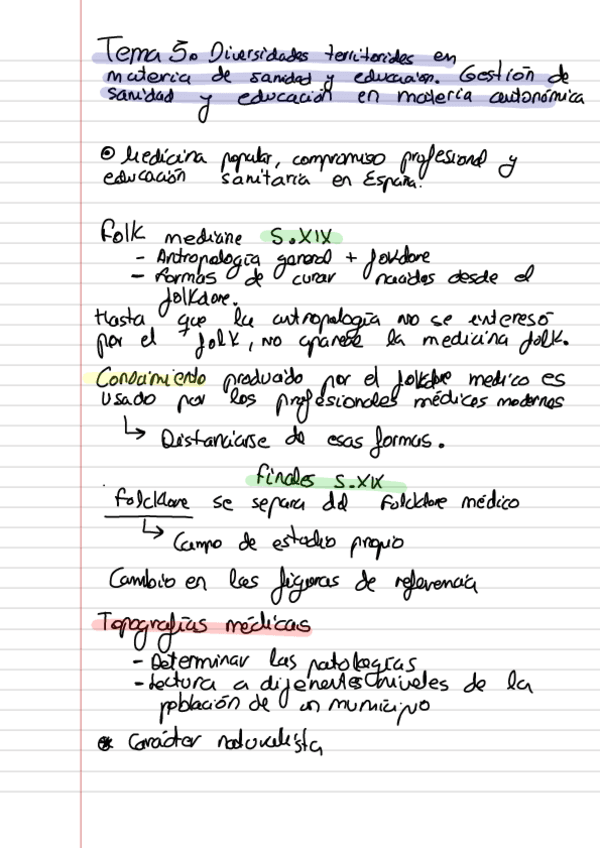 Tema 5. Diversidades territoriales en
materia de sanidad y educación. Gestión de
sanidad y educación en materia autonómica
Medicina popular, compromiso profesional y
educación sanitaria en España.
Folk medicine S.XIX
- Antropología general + folklore
- Formas de curar nacidas desde el
folklore.
Hasta que la antropología no se interesó
por el folk, no aparece la medicina folk.
Conocimiento producido por el folklore medico es
usado por los profesionales médicos modernos
↳ Distanciarse de esas formas.
Finales S.XIX
Folcklore se separa del Folcklore médico
↳ Campo de estudio propio
Cambio en las figuras de referencia
Topografías médicas
- Determinar las patologías
- Lectura a diferentes niveles de la
población de un municipio
* Carácter naturalista